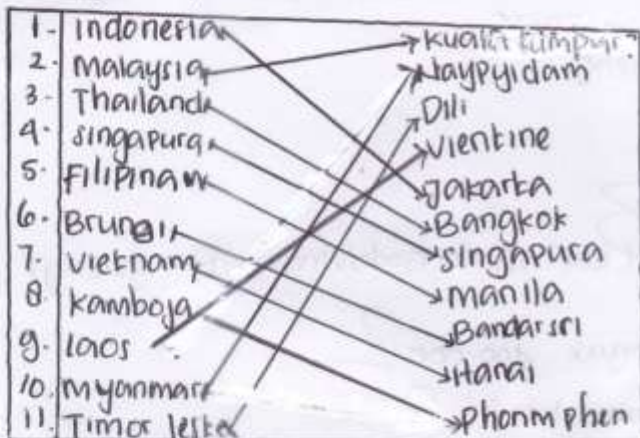 1. Indonesia
2. Malaysia
3. Thailand
4. Singapura
5. Filipina
6. Brunai
7. Vietnam
8. Kamboja
9. Laos
10. Myanmar
11. Timor leste
Kuala Lumpur
Naypyidam
Dili
Vientine
Jakarta
Bangkok
Singapura
Manila
Bandar sri
Hanai
Phonm phen